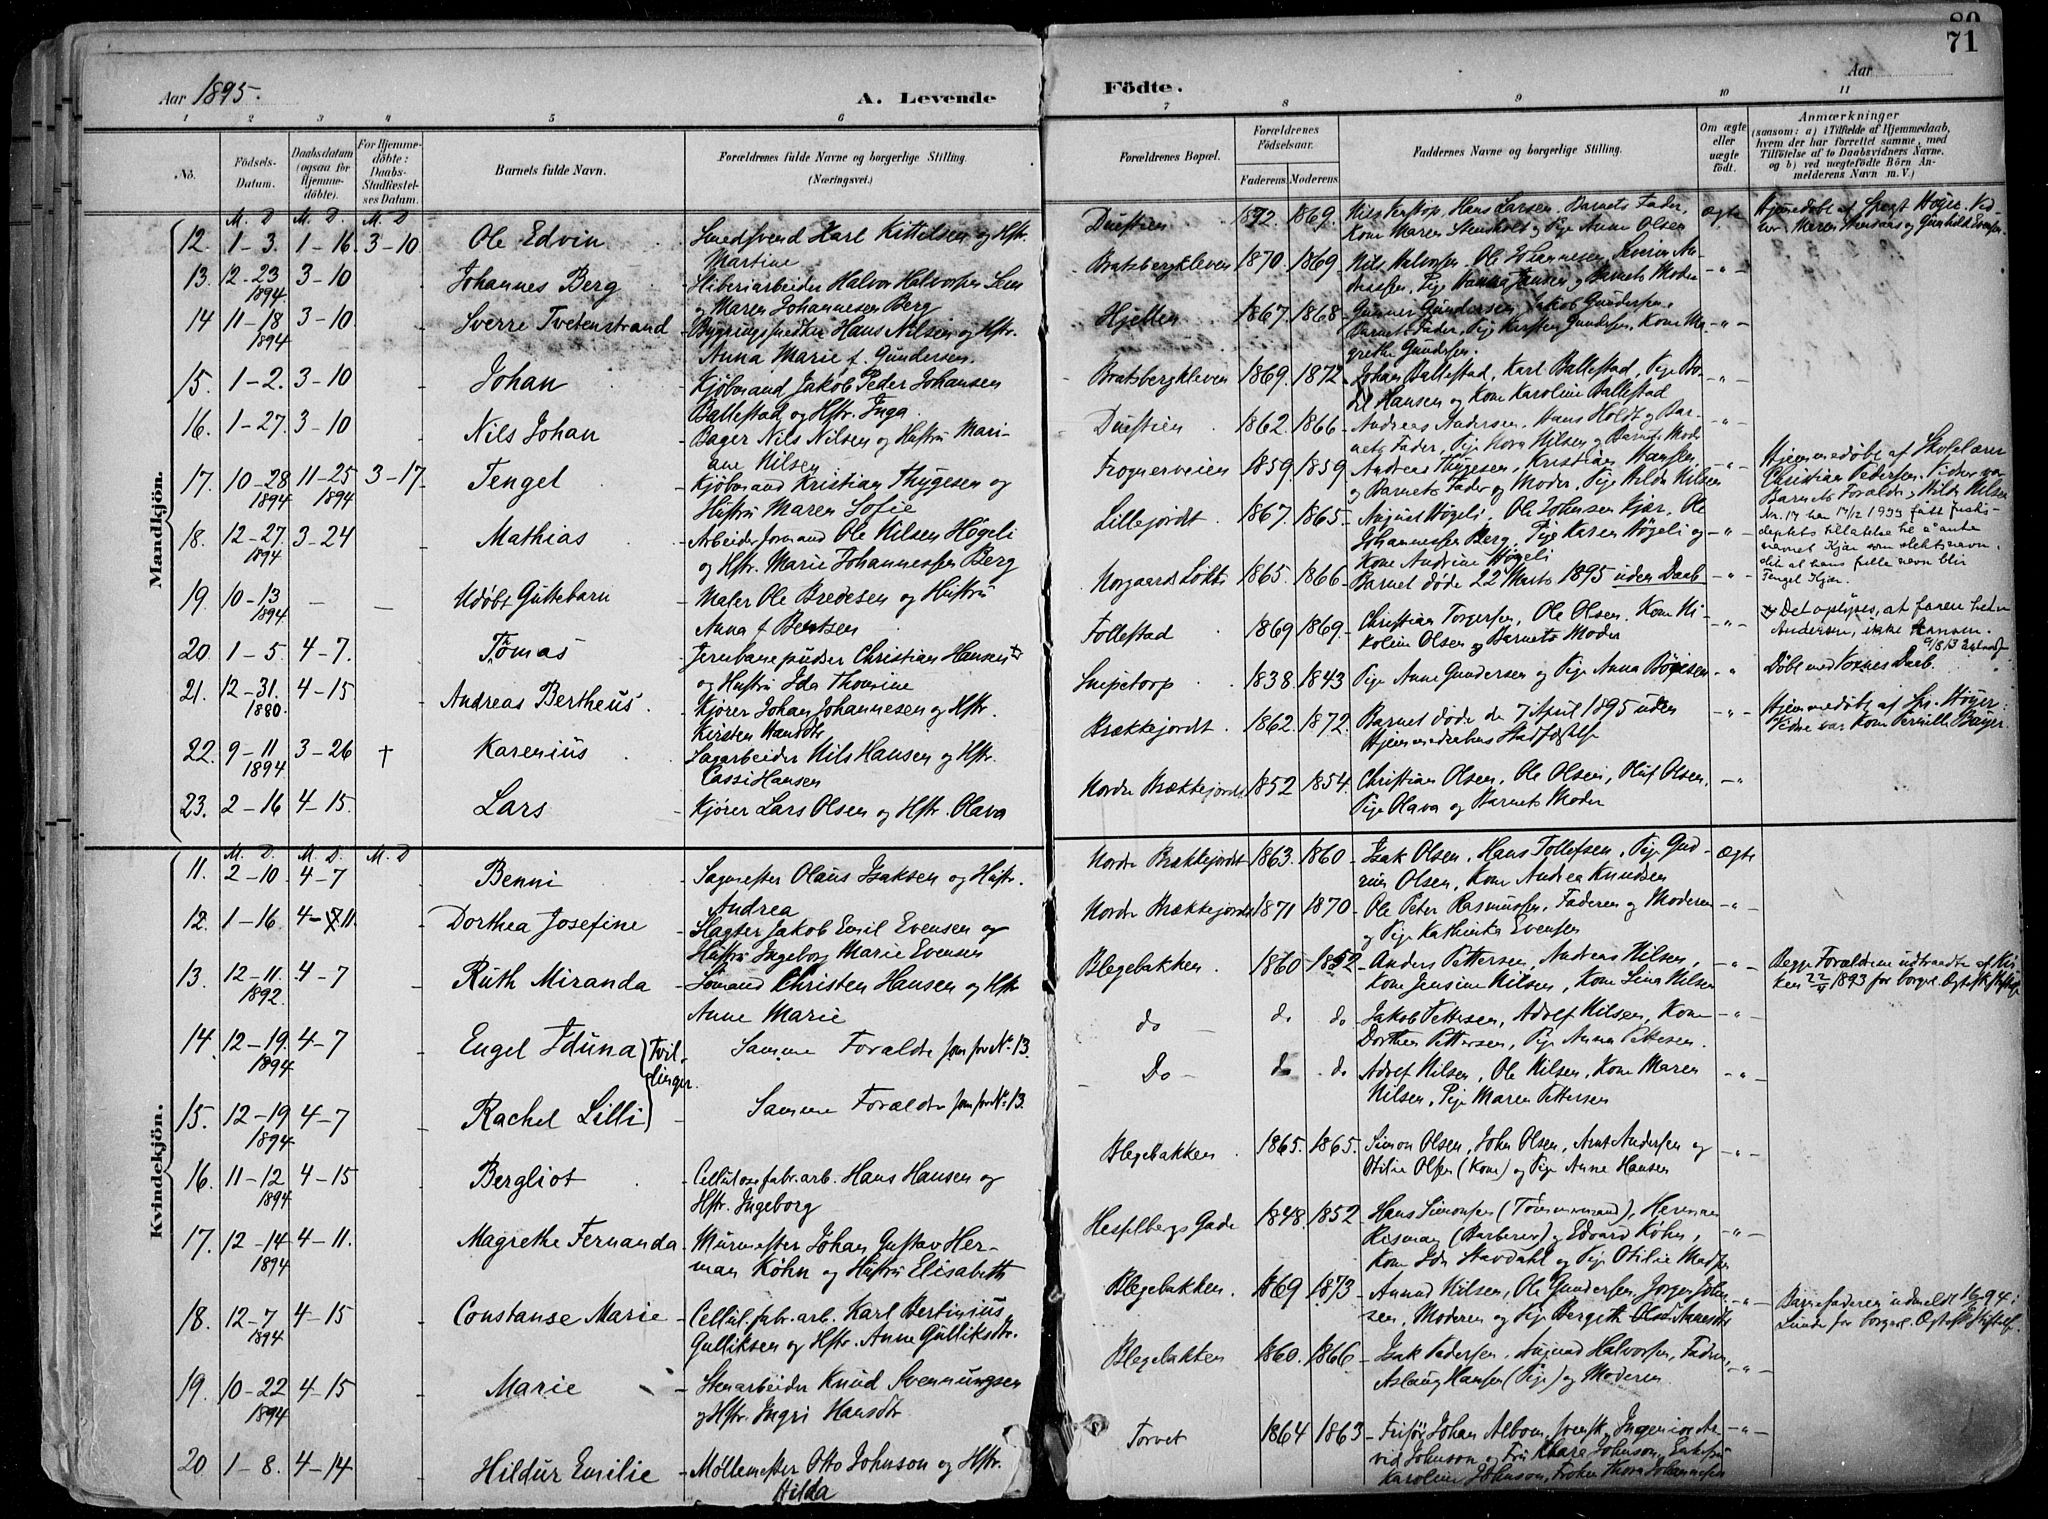 80
71
Aar 1895.
A. Levende
Födte.
Aar
1 2 3 4 5 6 7 8 9 10 11
No.
Födsels-Datum.
Daabsdatum (ogsaa for Hjemmedöbte).
For Hjemmedöbte: Daabs-Stadfæstelses Datum.
Barnets fulde Navn.
Forældrenes fulde Navne og borgerlige Stilling.
(Næringsvei.)
Forældrenes Bopæl.
Forældrenes Födselsaar.
Faderens. Moderens.
Faddernes Navne og borgerlige Stilling.
Om ægte eller uægte födt.
Anmærkninger
(saasom: a) i Tilfælde af Hjemmedaab, hvem der har forrettet samme, med Tilföielse af to Daabsvidners Navne, og b) ved uægtefödte Börn Anmelderens Navn m. V.)
Mandkjön.
M. D. M. D. M. D
12. 1-3. 1-16 3-10 Ole Edvin Smedsvend Karl Kittelsen og Hstr. Martine Duestien 1872. 1869. Nils Hans Larsen. Barnets Fader, Kone Maren og Pige Anne Olsen ægte Hjemmedøbt af
13. 12-23 1894. 3-10 Johannes Berg Sliberiarbeider Halvor Halvorsen og Maren Johannesen Berg Bratsbergkleven 1870. 1869. Nils Halvorsen. Ole Johannesen, Pige Hanna Jansen og Barnets Moder -"-
14 11-18 1894 3-10 Sverre Tvetenstrand Bygningssnedker Hans Nilsen og Hstr. Anna Marie f. Gundersen. Hjellen 1867. 1868. Gunner Gundersen, Jakob Gundersen, Barnets Fader, Pige Gundersen, Kone Magrethe Gundersen. -"-
15. 1-2. 3-10 - Johan Kjøbmand Jakob Peder Johansen Ballestad og Hstr. Inga. Bratsbergkleven 1869. 1872. Johan Ballestad, Karl Ballestad, Pige Bodil Hansen og Kone Karoline Ballestad -"-
16. 1-27. 3-10 - Nils Johan Bager Nils Nilsen og Hustru Mariane Nilsen Duestien 1862. 1866 Andreas Andersen, Hans Holdt og Barnets Fader, Pige Nilsen og Barnets Moder -"-
17. 10-28 1894 11-25 1894 3-17. Tengel Kjøbmand Kristian Thygesen og Hustru Maren Sofie Frognerveien 1859. 1859. Andreas Thygesen, Kristian Hansen og Barnets Fader og Moder, Pige Hilda Nilsen -"- Hjemmedøbt af Christian Pedersen. Vidner var Barnets Foraldre, Hilda Nilsen
No. 17 har 17/12 1933 fått tillatelse til å anta navnet Kjær som slektsnavn, hans fulle navn blir Tengel Kjær.
18. 12-27. 1894. 3-24 Mathias Arbeidsformand Ole Nilsen Høgeli og Hstr. Marie Johannessen Berg Lillejordt 1867. 1865. August Høgeli, Ole Johnsen Kjær, Ole Johannessen Berg, Pige Karen Høgeli og Kone Andrine Høgeli -"-
19. 10-13 1894. - - Udøbt Guttebarn Maler Ole Bredesen og Hustru Anna f Berntsen 1865. 1866. Barnet døde 22 Marts 1895 uden Daab -"-
20. 1-5. 4-7. - Tomas Jernbanepudser Christian Hansen og Hustru Ida Thomine Follestad 1869 1869. Christian Torgersen, Ole Olsen. Kone Nikoline Olsen og Barnets Moder -"- Det oplyses, at faren heder Andersen, ikke Hansen.
21. 12-31. 1880. 4-15 Andreas Bertheus. Kjører Johan Johannesen og Hstr. Kirsten Hansdtr. Snipetorp 1838. 1843 Pige Anne Gundersen og Pige Anna Bøiesen " Døbt med Voxnes Daab.
22. 9-11 1894 3-26 † Karenius Sagarbeider Nils Hansen og Hstr. Cassi Hansen Brækkejordt. 1862. 1872. Barnet døde de 7 April 1895 uden Hjemmedaabens Stadfæstelse -"- Hjemmedøbt af Høyer: Vidne var Kone Pernille Bøyer
23. 2-16 4-15. Lars Kjører Lars Olsen og Hstr. Olava Nordre Brækkejordt. 1852 1854. Christian Olsen, Ole Olsen, Oluf Olsen, Pige Olava og Barnets Moder -"-
Kvindekjön.
M. D. M. D. M. D
11. 2-10. 4-7 Benni Sagmester Olaus Isaksen og Hustr. Andrea Nordre Brækkejordt 1863. 1860 Isak Olsen, Hans Tollefsen, Pige Gudrun Olsen, Kone Andrea Knudsen Ægte
12. 1-16. 4-11. Dorthea Josefine Slagter Jakob Emil Evensen og Hustru Ingeborg Marie Evensen Nordre Brækkejordt 1871 1870 Ole Peter Rasmussen, Faderen og Moderen og Pige Kathinka Evensen -"-
13. 12-11. 1892. 4-7 Ruth Miranda Sømand Christen Hansen og Hstr Anne Marie Blegebakken. 1860 1852 Anders Pettersen, Andreas Nilsen, Kone Jensine Nilsen, Kone Lina Nilsen -"- Begge Forældrene udtraadte af Kirken 1893 for borgerl. Ægteskabsstiftelse
14. 12-19. 1894 4-7 Engel Iduna Samme Foraldre som for No. 13. do - do do Jakob Pettersen, Adolf Nilsen, Kone Dorthea Pettersen, Pige Anna Pettersen. -"-
Tvillinger.
15. 12-19 1894 4-7 Rachel Lilli Samme Foraldre som for No. 13. Do - do do Adolf Nilsen, Ole Nilsen, Kone Maren Nilsen, Pige Maren Pettersen -"-
16. 11-12 1894 4-15 Bergliot Cellulosefabr.arb. Hans Hansen og Hstr. Ingeborg Blegebakken 1865. 1865. Simon Olsen, John Olsen, Arnt Andersen og Otilie Olsen (Kone) og Pige Anne Hansen -"-
17. 12-14 1894 4-11. Magrethe Fernanda Murmester Johan Gustav Herman Køhn og Hustru Elisabeth Hesselbergs Gade 1848. 1852 Hans Simonsen (Tømmermand), Herman Resman (Barberer) og Edvard Køhn, Kone Ida Stavdahl og Pige Otilie Madsen -"-
18. 12-7 1894 4-15 Constanse Marie Cellul. fabr. arb. Karl Bertinius Gulliksen og Hstr. Anne Gulliksdtr. Blegebakken. 1869 1873 Amund Nilsen, Ole Gundersen, Jørgen Johnsen, Moderen og Pige Bergith -"- Barnefaderen udmeldt 94 i Lunde for borgerl. Ægteskabsstiftelse.
19. 10-22 1894 4-15 Marie Stenarbeider Knud Svennungsen og Hstr. Ingri Hansdtr. Blegebakken 1860. 1866 Isak Pedersen, Halvorsen, Faderen, Aslaug Hansen (Pige) og Moderen. -"-
20 1-8. 4-14 Hildur Emilie Møllemester Otto Johnson og Hstr. Hilda Torvet 1864 1863 Frisør Johan Albom, Ingeniør Arvid Johnson og Fru Klara Johnson, Enkefru Karoline Johnson, Frøken Thora Johannesen -"-